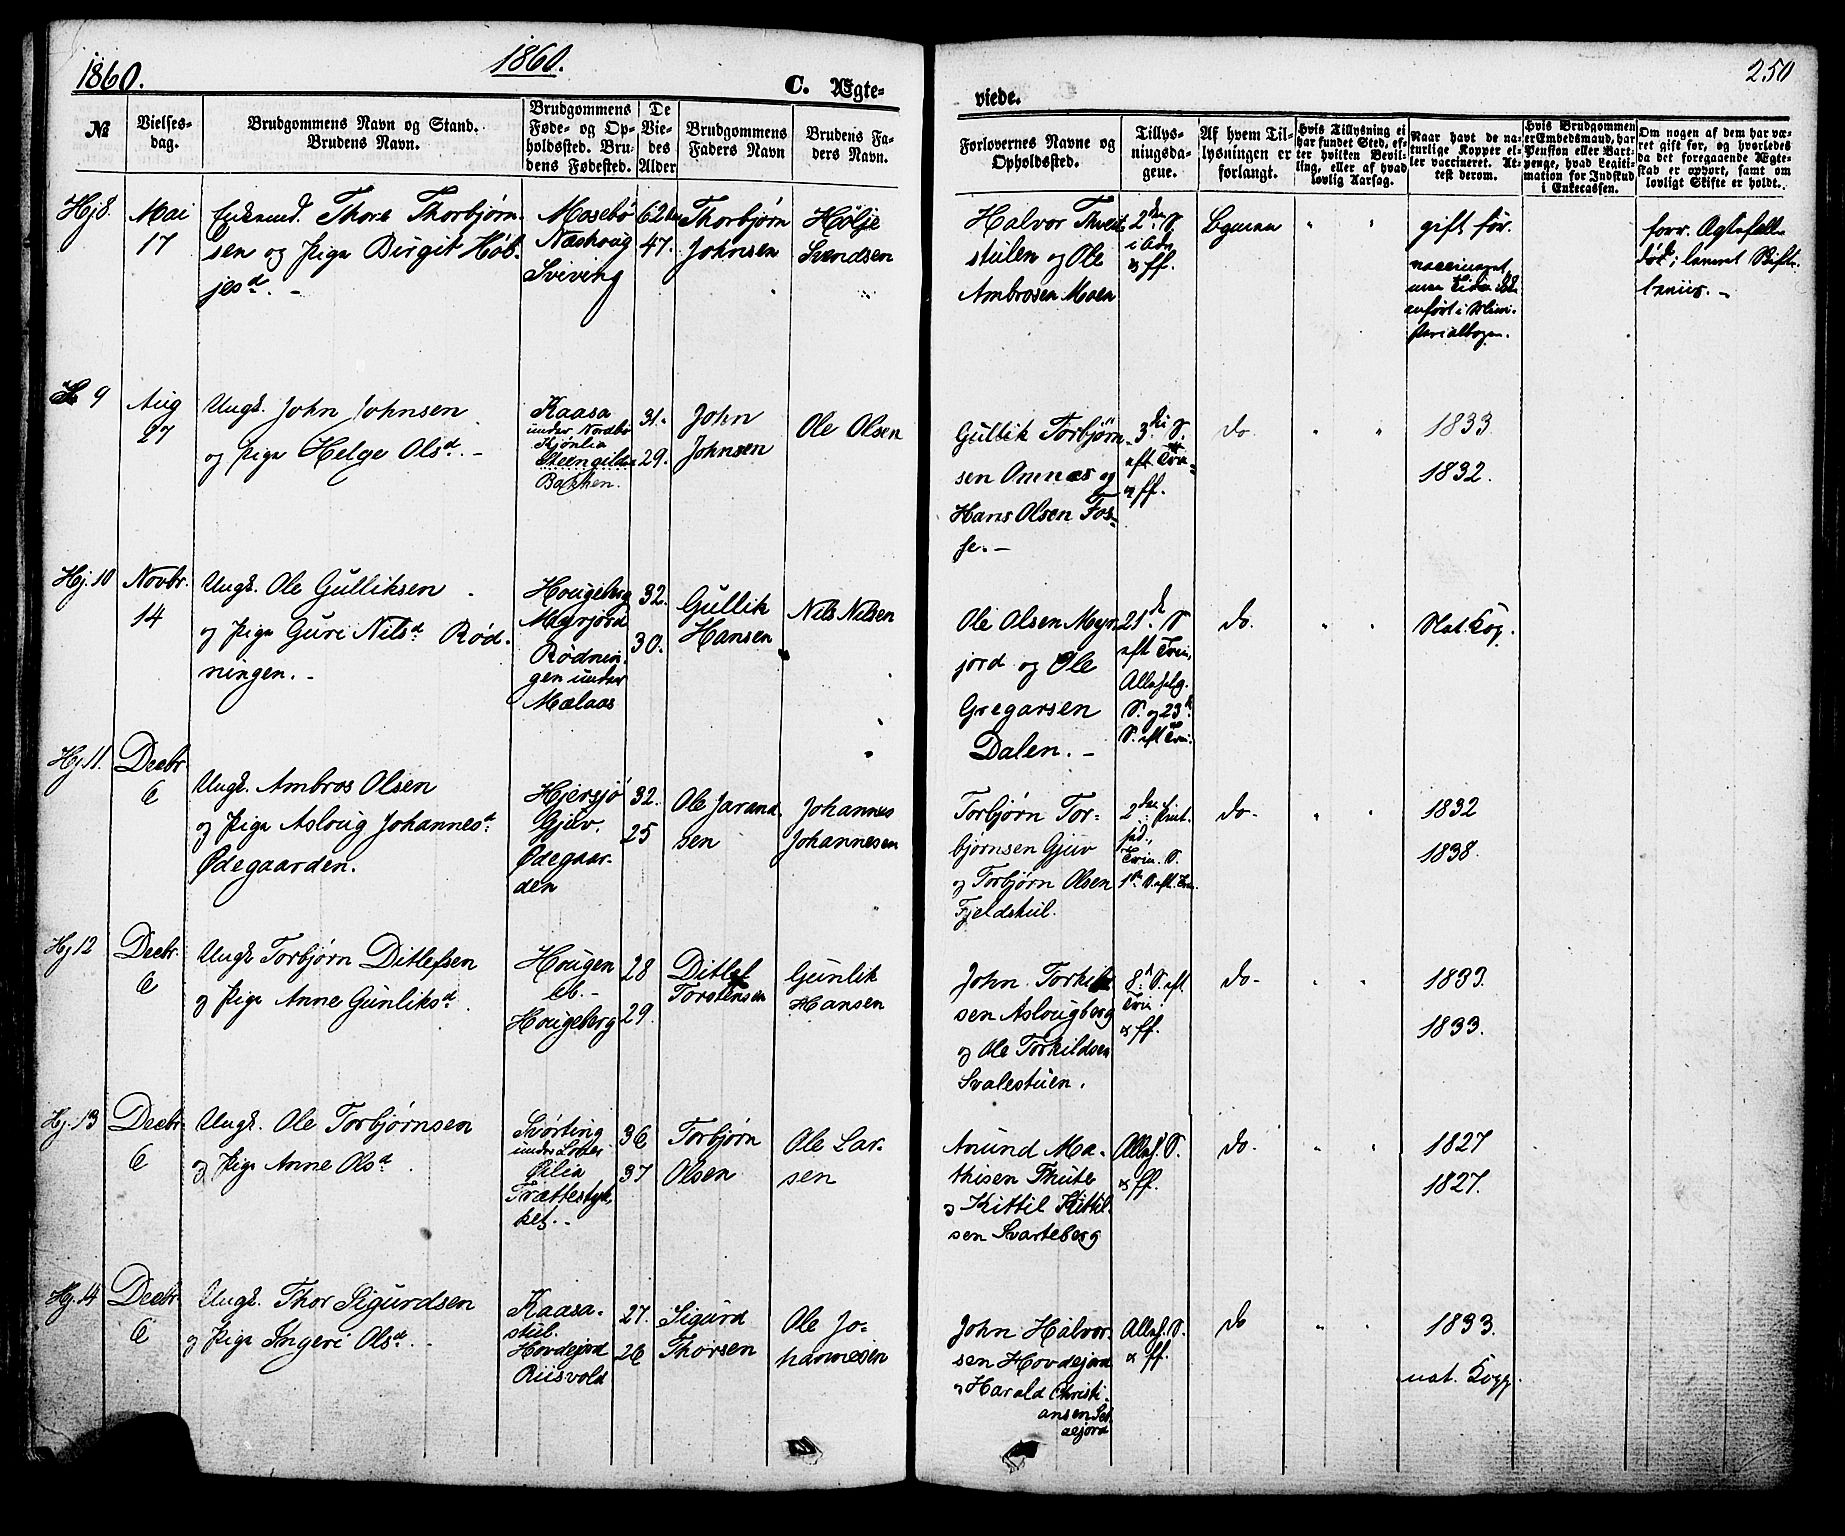 1860.
1860.
C. Ægte-
viede.
250
№
Vielses-
dag.
Brudgommens Navn og Stand.
Brudens Navn.
Brudgommens
Føde- og Op-
holdssted. Bru-
dens Fødested.
De
Vie-
des
Alder
Brudgommens
Faders Navn
Brudens Fa-
ders Navn.
Forlovernes Navne og
Opholdssted.
Tillys-
ningsda-
gene.
Af hvem Til-
lysningen er
forlangt.
Hvis Tillysning ei
har fundet Sted, ef-
ter hvilken Bevil-
ling, eller af hvad
lovlig Aarsag.
Naar havt de na-
turlige Kopper el-
ler vaccineret. At-
test derom.
Hvis Brudgommen
er Embedsmand, har
Pension eller Vart-
penge, hvad Legiti-
mation for Indskud
i Enkecassen.
Om nogen af dem har væ-
ret gift før, og hvorledes
da det foregaaende Ægte-
skab er ophørt, samt om
lovligt Skifte er holdt.
Hj 8.
Mai
17
Enkemd. Thore Thorbjørn-
sen og Pige Birgit Høl-
jesd. -
Mosebø
Næshoug
Sviving
62
47.
Thorbjørn
Johnsen
Hølje
Svendsen
Halvor Tveit-
stulen og Ole
Ambrosen Moen
2den S.
i Adv.
& ff.
Bgmen
gift før.
vaccineret
men Tiden ikke
anført i Mini-
sterialbogen.
forr. Ægtefælle
død;
9
Aug
27
Ungk. John Johnsen
og Pige Helge Olsd. -
Kaasa
under Nordbø
Kjønlia
Steengilde
Bakken.
31.
29.
John
Johnsen
Ole Olsen
Gullik Torbjørn-
sen Omnæs og
Hans Olsen Fos-
se. -
3die S.
eft Trin.
& ff.
do.
1833
1832.
Hj. 10
Novbr.
14
Ungk. Ole Gulliksen
og Pige Guri Nilsd. Rød-
ningen. -
Hougeberg
Myrjord
Rødnin-
gen under
Mælaas
32.
30.
Gullik
Hansen
Nils Nilsen
Ole Olsen Myr-
jord og Ole
Gregarsen
Dalen. -
21d. S.
eft Trin,
Allehelg.
S. og 23d.
S. eft Trin.
do.
Nat. Kop.
Hj. 11.
Decbr
6
Ungk. Ambros Olsen
og Pige Asloug Johannesd.
Ødegaarden.
Hjersjø
Gjuv.
Ødegaar-
den
32.
25
Ole Jarand-
sen
Johannes
Johannesen
Torbjørn Tor-
bjørnsen Gjuv
og Torbjørn Olsen
Fjeldstul.
2den Pint-
sed.,
Trin. S.
1ste S. eft. Trin.
do.
1832
1838.
Hj 12
Decbr.
6
Ungk Torbjørn Ditlefsen
og Pige Anne Gunliksd.
Hougen
eb. -
Hougeberg
28
29.
Ditlef
Torstensen
Gunlik
Hansen
John Torkild-
sen Aslougberg
og Ole Torkildsen
Svalestuen.
8d. S. eft.
Trin.
& ff.
do.
1833.
1833.
Hj. 13
Decbr.
6
Ungk. Ole Torbjørnsen
og Pige Anne Olsd.
Svörting
Ølia
Trættestyk-
ket. -
36
37
Torbjørn
Olsen
Ole Lar-
sen
Anund Ma-
thisen Thute
og Kittil Kittil-
sen Svarteberg
Alleh. S.
& ff.
do.
1827
1827.
Hj. 14
Decbr.
6
Ungk. Thor Sigurdsen
og Pige Ingeri Olsd. -
Kaasa-
stul.
Hovdejord
Riisvold
27.
26
Sigurd
Thorsen
Ole Jo-
hannesen
John Halvor-
sen Hovdejord
og Harald Christi-
ansen Set-
aejord
Alleh. S.
& ff.
do
1833.
nat. Kopp.